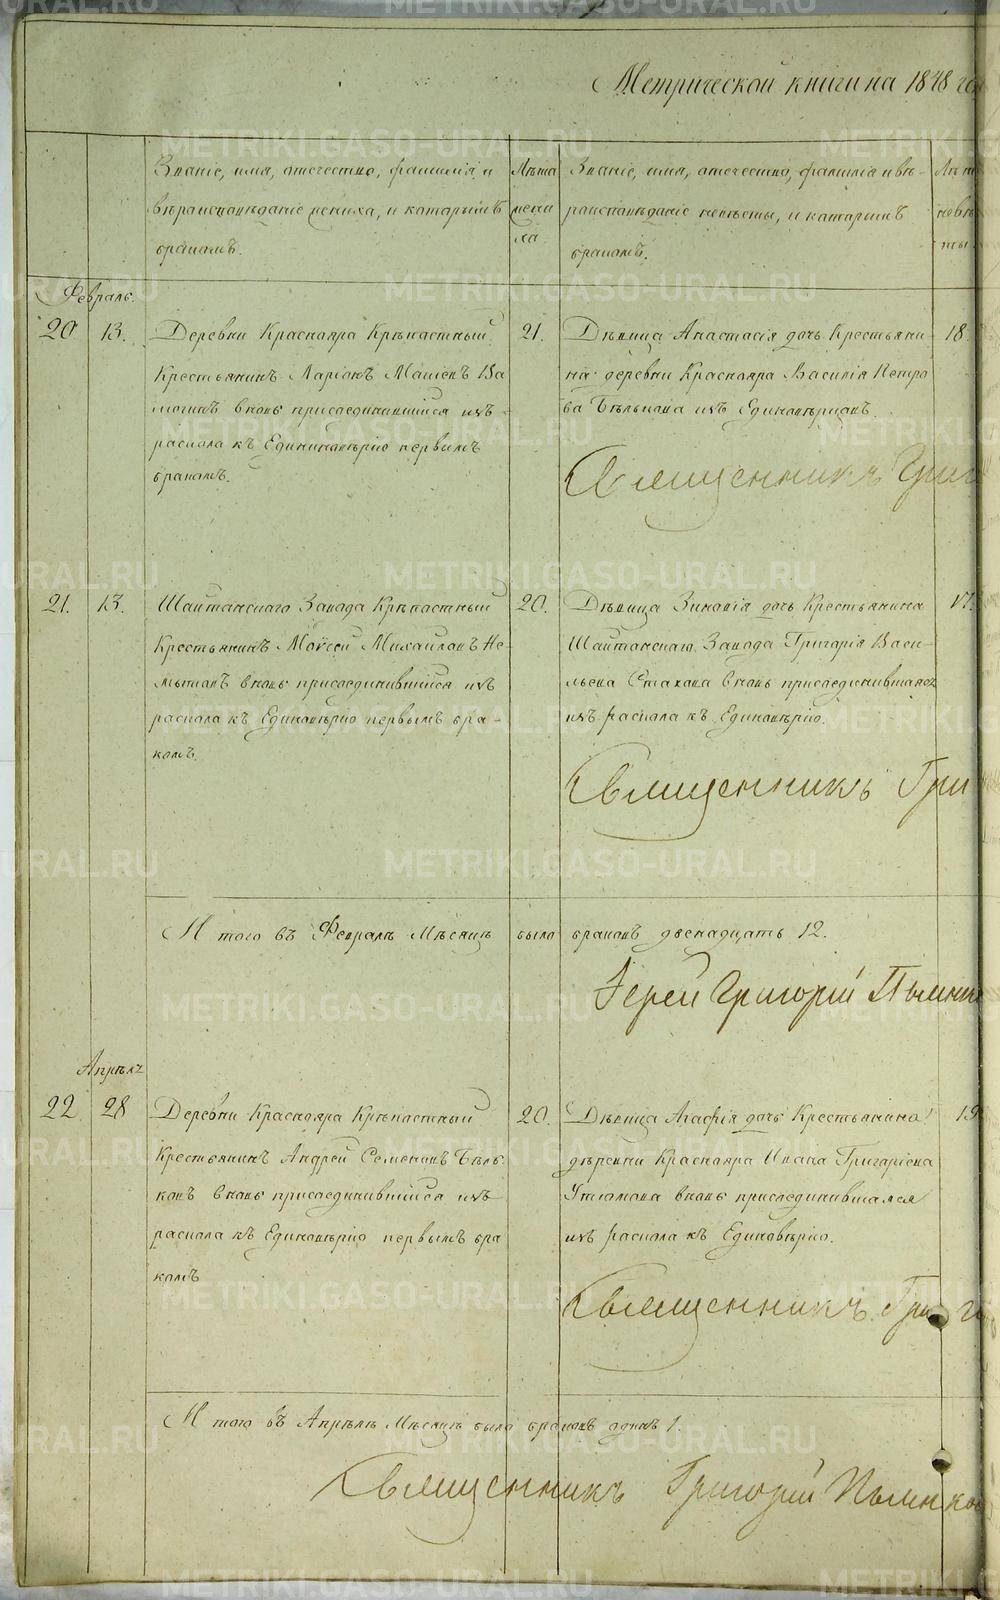 Метрической книги на 1848 го
Званіе, имя, отечество, фамилія, и
вѣроисповѣданіе жениха, и которымъ
бракомъ.
Лѣта
жени
ха.
Званіе, имя, отечество, фамилія и вѣ-
роисповѣданіе невѣсты, и которымъ
бракомъ.
Лѣт
невѣ
ты.
Февраль.
20 13.
Деревни Краснояра Крѣпостный
Крестьянинъ Ларіонъ
вновь присоединившійся изъ
раскола къ Единовѣрію первымъ
бракомъ.
21.
Дѣвица Анастасія дочь Крестьяни-
на деревни Краснояра Василія Петро
ва Бѣлькова изъ Единовѣрцовъ.
18.
Священникъ Григ
21. 13.
Шайтанскаго Завода Крѣпостный
Крестьянинъ Моѵсей Михайловъ Не-
мытовъ вновь присоединившійся изъ
раскола къ Единовѣрію первымъ бра-
комъ.
20.
Дѣвица Зиновія дочь Крестьянина
Шайтанскаго Завода Григорія Васи-
льева Стахова вновь присоединившаяся
изъ раскола къ Единовѣрію.
17.
Священникъ Гри
И того въ Февралѣ Мѣсяцѣ было браковъ двенадцать 12.
Іерей Григорій Пылинк
Апрѣль
22 28
Деревни Краснояра Крѣпостный
Крестьянинъ Андрей Семеновъ Бѣль-
ковъ вновь присоединившійся изъ
раскола къ Единовѣрію первымъ бра
комъ
20.
Дѣвица Агафія дочь Крестьянина
деревни Краснояра Ивана Григоріева
Утюмова вновь присоединившаяся
изъ раскола къ Единовѣрію.
19
Священникъ Григ
И того въ Апрѣлѣ Мѣсяцѣ было браковъ одинъ 1.
Священникъ Григорій Пылинков
METRIKI.GASO-URAL.RU